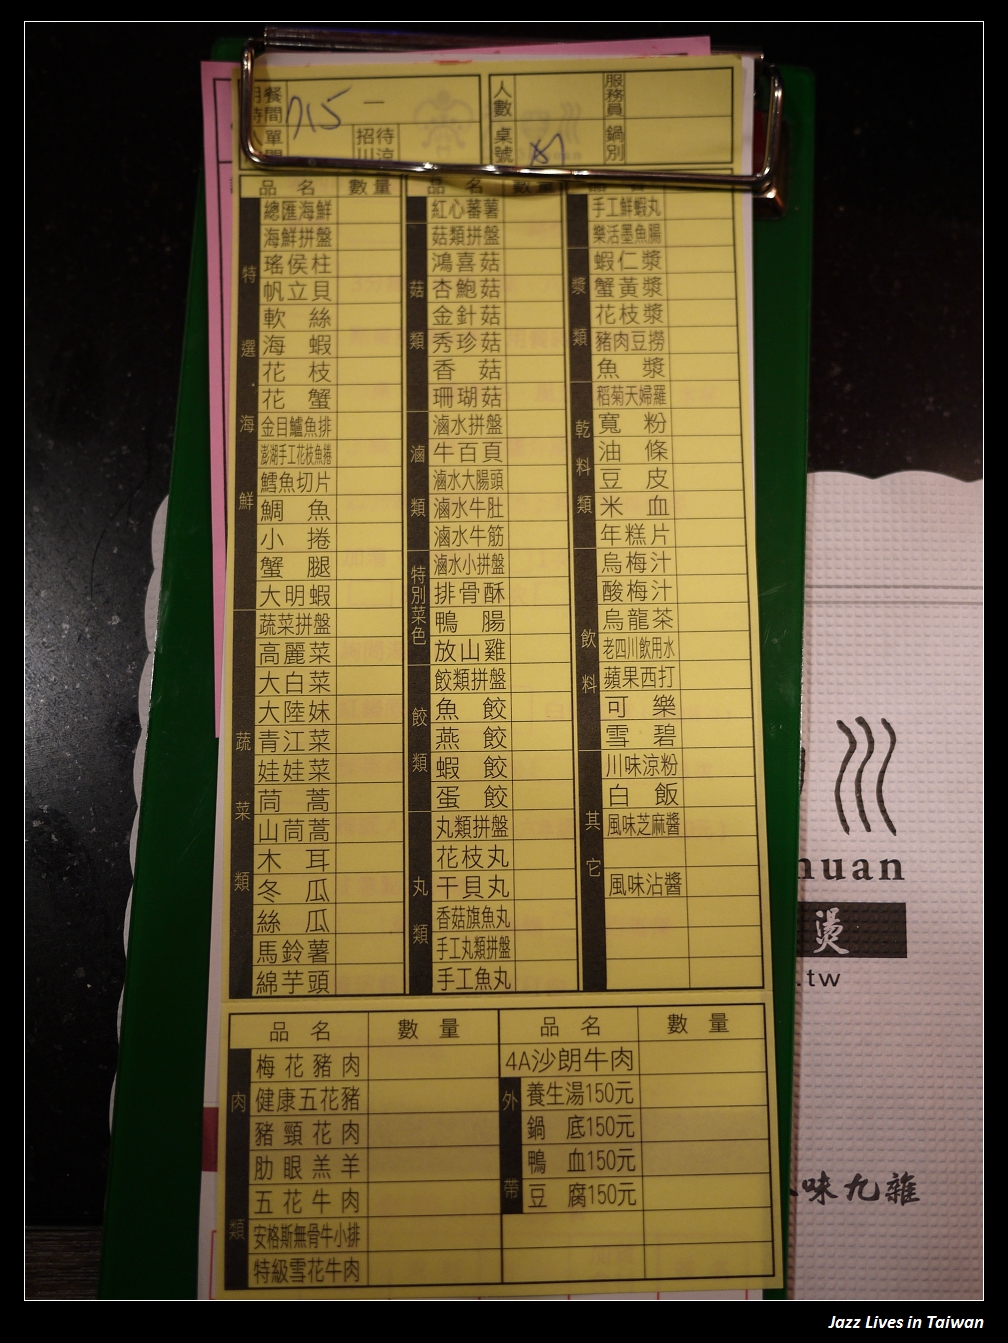 用餐時間 715 一
人數
服務員
單
招待
川涼
桌號
鍋別
品名 數量
特選.海鮮
總匯海鮮
海鮮拼盤
瑤侯柱
帆立貝
軟絲
海蝦
花枝
花蟹
金目鱸魚排
澎湖手工花枝魚捲
鱈魚切片
鯛魚
小捲
蟹腿
大明蝦
蔬菜類
蔬菜拼盤
高麗菜
大白菜
大陸妹
青江菜
娃娃菜
茼蒿
山茼蒿
木耳
冬瓜
絲瓜
馬鈴薯
綿芋頭
品名 數量
紅心蕃薯
菇類
菇類拼盤
鴻喜菇
杏鮑菇
金針菇
秀珍菇
香菇
珊瑚菇
滷類
滷水拼盤
牛百頁
滷水大腸頭
滷水牛肚
滷水牛筋
特別菜色
滷水小拼盤
排骨酥
鴨腸
放山雞
餃類
餃類拼盤
魚餃
燕餃
蝦餃
蛋餃
丸類
丸類拼盤
花枝丸
干貝丸
香菇旗魚丸
手工丸類拼盤
手工魚丸
品名
手工鮮蝦丸
樂活墨魚腸
漿類
蝦仁漿
蟹黃漿
花枝漿
豬肉豆撈
魚漿
乾料類
稻菊天婦羅
寬粉
油條
豆皮
米血
年糕片
飲料
烏梅汁
酸梅汁
烏龍茶
老四川飲用水
蘋果西打
可樂
雪碧
其它
川味涼粉
白飯
風味芝麻醬
風味沾醬
品名 數量
肉類
梅花豬肉
健康五花豬
豬頸花肉
肋眼羔羊
五花牛肉
安格斯無骨牛小排
特級雪花牛肉
品名 數量
4A沙朗牛肉
外帶
養生湯150元
鍋底150元
鴨血150元
豆腐150元
huan
燙
.tw
味九雜
Jazz Lives in Taiwan